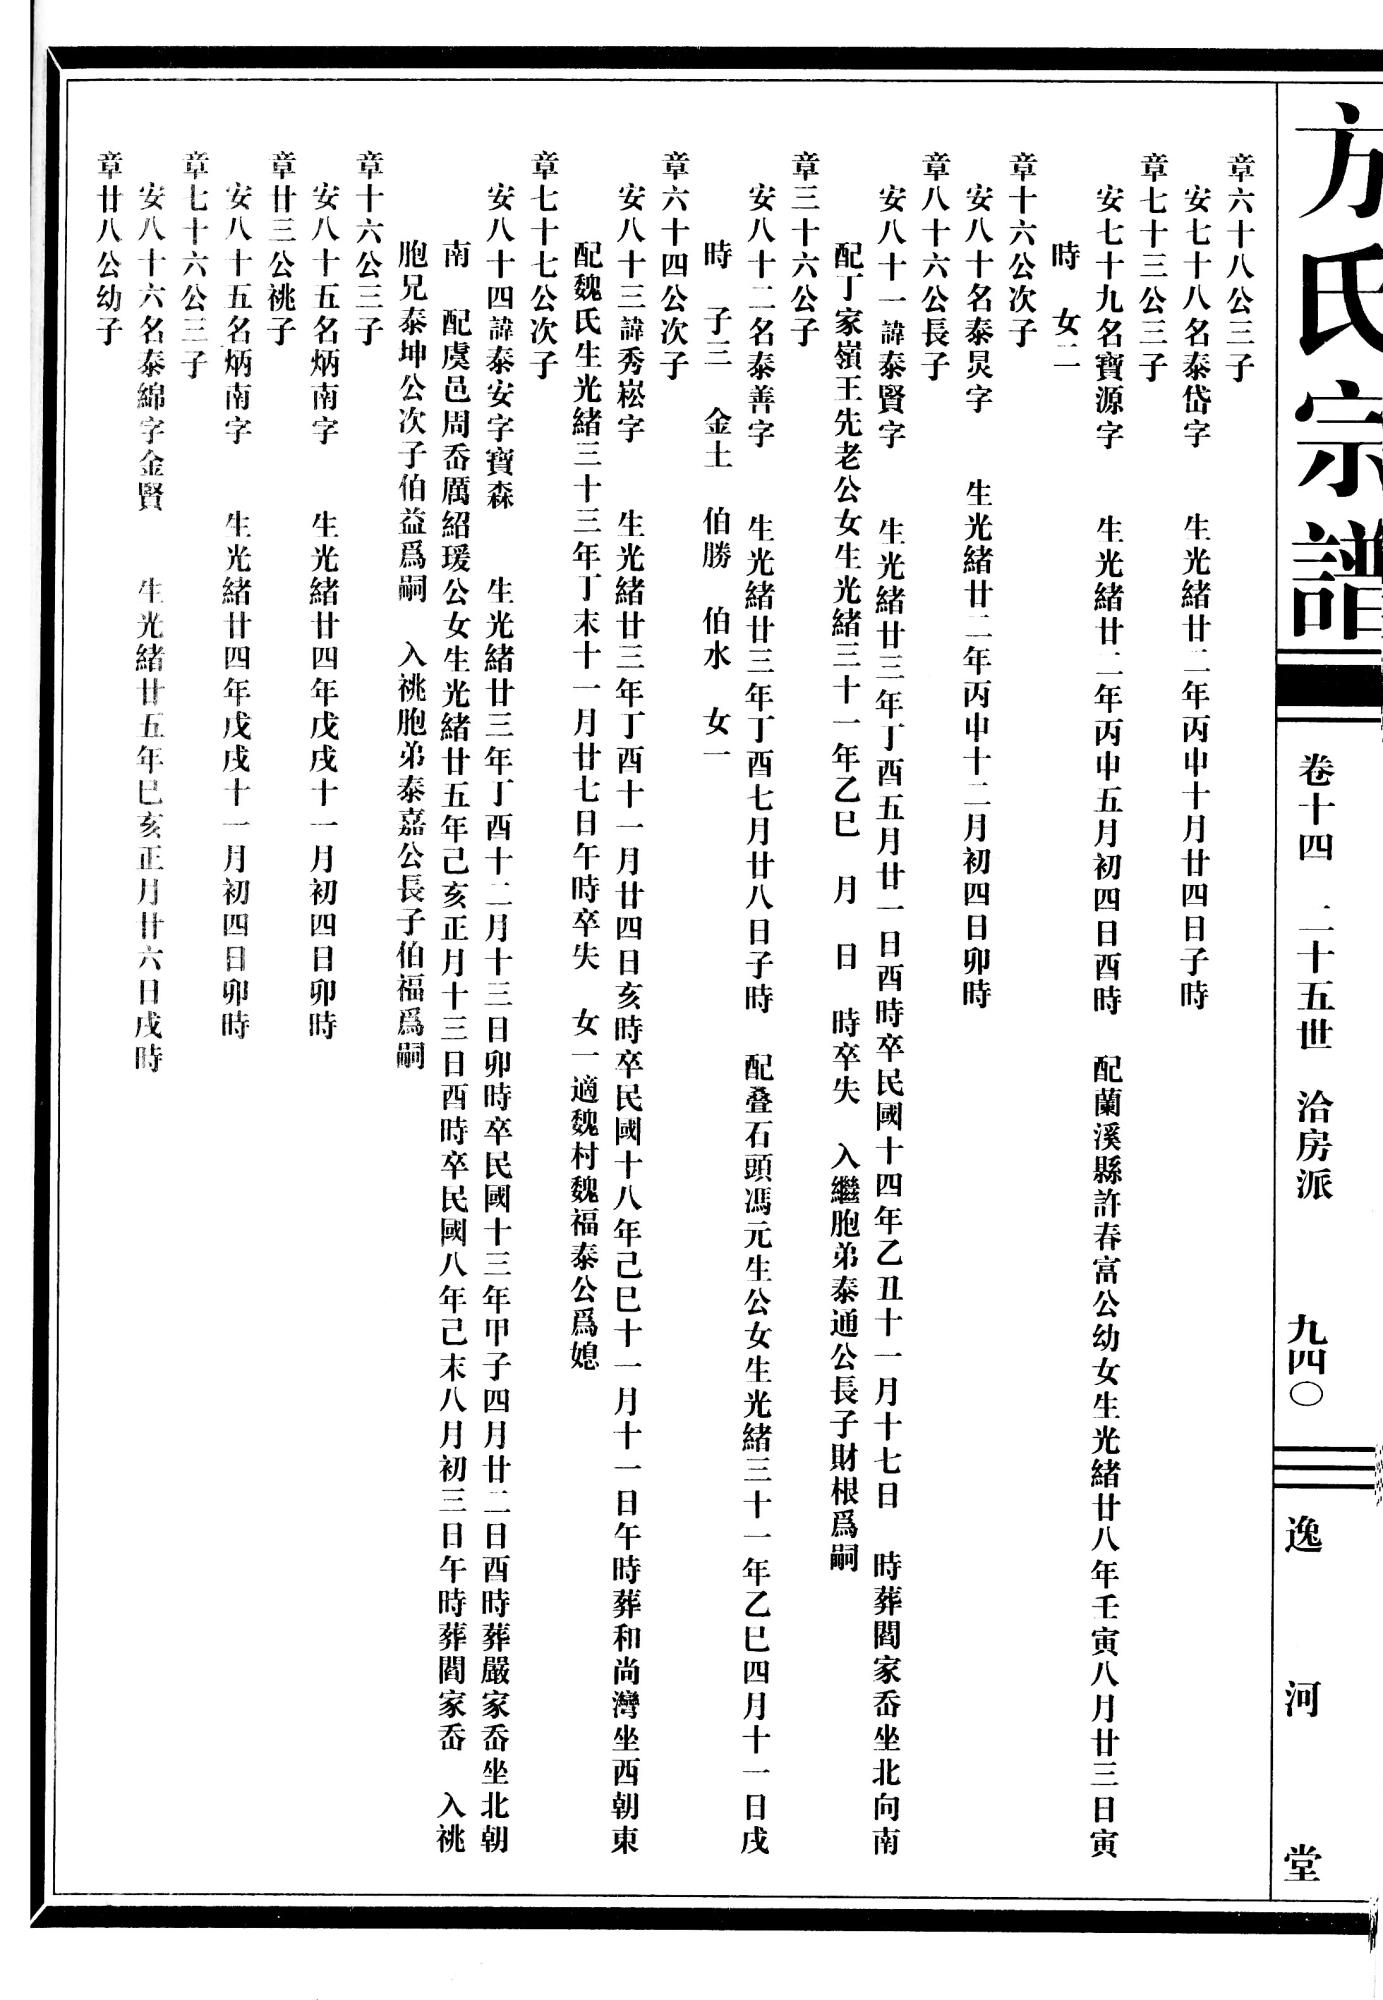 方氏宗譜
卷十四 二十五世 洽房派 九四〇
逸河堂
章六十八公三子
安七十八名泰岱字 生光緒廿二年丙申十月廿四日子時
章七十三公三子
安七十九名寶源字 生光緒廿二年丙申五月初四日酉時 配蘭溪縣許春富公幼女生光緒廿八年壬寅八月廿三日寅
時 女二
章十六公次子
安八十名泰炅字 生光緒廿二年丙申十二月初四日卯時
章八十六公長子
安八十一諱泰賢字 生光緒廿三年丁酉五月廿一日酉時卒民國十四年乙丑十一月十七日 時葬閻家岙坐北向南
配丁家嶺王先老公女生光緒三十一年乙巳 月 日 時卒失 入繼胞弟泰通公長子財根爲嗣
章三十六公子
安八十二名泰善字 生光緒廿三年丁酉七月廿八日子時 配叠石頭馮元生公女生光緒三十一年乙巳四月十一日戌
時 子三 金土 伯勝 伯水 女一
章六十四公次子
安八十三諱秀崧字 生光緒廿三年丁酉十一月廿四日亥時卒民國十八年己巳十一月十一日午時葬和尚灣坐西朝東
配魏氏生光緒三十三年丁未十一月廿七日午時卒失 女一適魏村魏福泰公爲媳
章七十七公次子
安八十四諱泰安字寶森 生光緒廿三年丁酉十二月十三日卯時卒民國十三年甲子四月廿二日酉時葬嚴家岙坐北朝
南 配虞邑周岙厲紹瑗公女生光緒廿五年己亥正月十三日酉時卒民國八年己未八月初三日午時葬閻家岙 入祧
胞兄泰坤公次子伯益爲嗣 入祧胞弟泰嘉公長子伯福爲嗣
章十六公三子
安八十五名炳南字 生光緒廿四年戊戌十一月初四日卯時
章廿三公祧子
安八十五名炳南字 生光緒廿四年戊戌十一月初四日卯時
章七十六公三子
安八十六名泰綿字金賢 生光緒廿五年巳亥正月廿六日戌時
章廿八公幼子